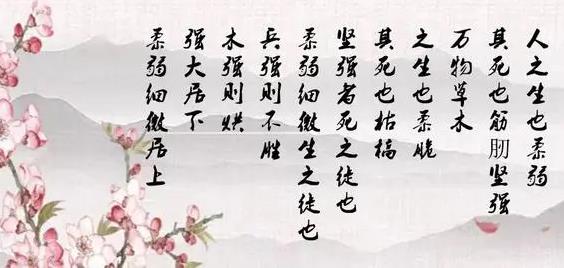 人之生也柔弱
其死也筋肕坚强
万物草木
之生也柔脆
其死也枯槁
坚强者死之徒也
柔弱细微生之徒也
兵强则不胜
木强则烘
强大居下
柔弱细微居上